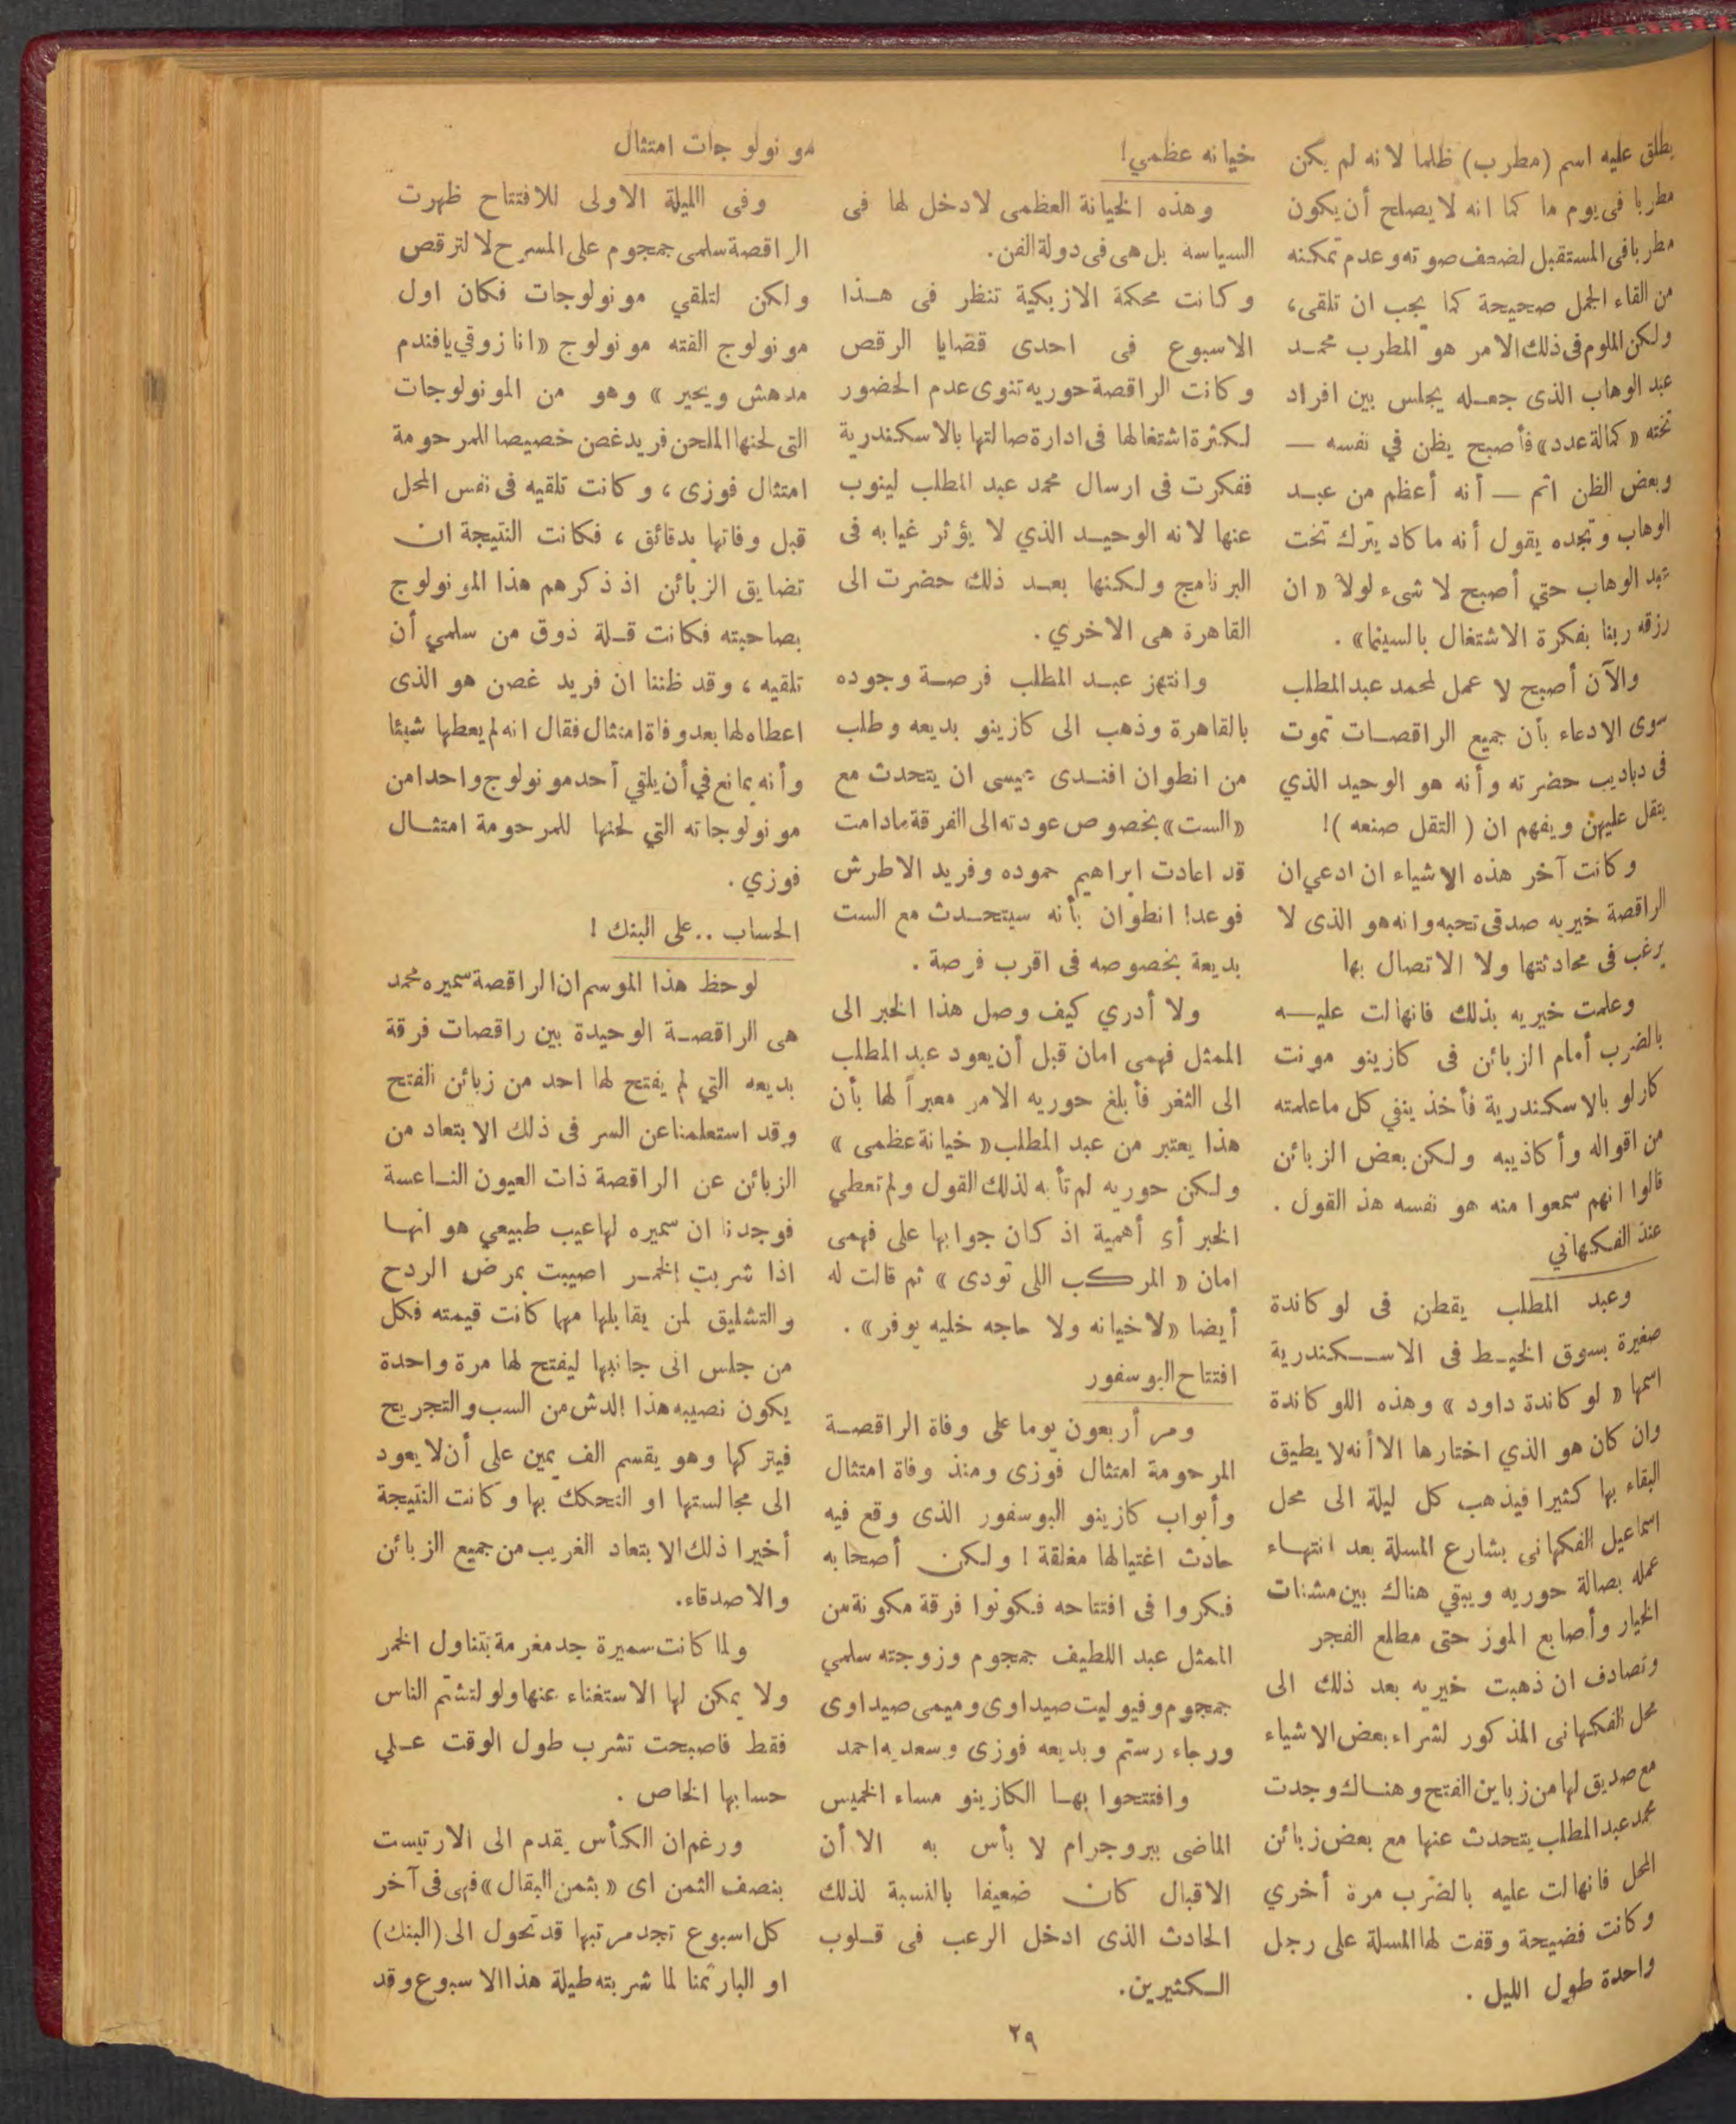 يطلق عليه اسم (مطرب) ظلما لانه لم يكن
مطربا فى يوم ما كما انه لا يصلح أن يكون
مطربا فى المستقبل لضعف صوته وعدم تمكنه
من القاء الجمل صحيحة كما يجب ان تلقى،
ولكن الملوم فى ذلك الامر هو المطرب محمد
عبد الوهاب الذى جعله يجلس بين افراد
تخته «كمالة عدد» فأصبح يظن في نفسه —
وبعض الظن اثم — أنه أعظم من عبد
الوهاب وتجده يقول أنه ما كاد يترك تخت
عبد الوهاب حتي أصبح لا شىء لولا « ان
رزقه ربنا بفكرة الاشتغال بالسينما» .
والآن أصبح لا عمل لمحمد عبد المطلب
سوى الادعاء بأن جميع الراقصات تموت
فى دباديب حضرته وأنه هو الوحيد الذي
يتقل عليهن ويفهم ان ( التقل صنعه )!
وكانت آخر هذه الاشياء ان ادعي ان
الراقصة خيريه صدقى تحبه وانه هو الذى لا
يرغب فى محادثتها ولا الاتصال بها
وعلمت خيريه بذلك فانهالت عليه
بالضرب أمام الزبائن فى كازينو مونت
كارلو بالاسكندرية فأخذ ينفي كل ماعلمته
من اقواله وأكاذيبه ولكن بعض الزبائن
قالوا انهم سمعوا منه هو نفسه هذ القول .
عند الفكهاني
وعبد المطلب يقطن فى لوكاندة
صغيرة بسوق الخيط فى الاسكندرية
اسمها « لوكاندة داود » وهذه اللوكاندة
وان كان هو الذي اختارها الا أنه لا يطيق
البقاء بها كثيرا فيذهب كل ليلة الى محل
اسماعيل الفكهانى بشارع المسلة بعد انتهاء
عمله بصالة حوريه ويبقي هناك بين مشنات
الخيار وأصابع الموز حتى مطلع الفجر
وتصادف ان ذهبت خيريه بعد ذلك الى
محل الفكهانى المذكور لشراء بعض الاشياء
مع صديق لها من زباين الفتح وهناك وجدت
محمد عبد المطلب يتحدث عنها مع بعض زبائن
المحل فانهالت عليه بالضرب مرة أخري
وكانت فضيحة وقفت لها المسلة على رجل
واحدة طول الليل .
خيانه عظمي!
وهذه الخيانة العظمى لا دخل لها فى
السياسة بل هى فى دولة الفن .
وكانت محكمة الازبكية تنظر فى هذا
الاسبوع فى احدى قضايا الرقص
وكانت الراقصة حوريه تنوى عدم الحضور
لكثرة اشتغالها فى ادارة صالتها بالاسكندرية
ففكرت فى ارسال محمد عبد المطلب لينوب
عنها لانه الوحيد الذي لا يؤثر غيابه فى
البرنامج ولكنها بعد ذلك حضرت الى
القاهرة هى الاخري .
وانتهز عبد المطلب فرصة وجوده
بالقاهرة وذهب الى كازينو بديعه وطلب
من انطوان افندى عيسى ان يتحدث مع
«الست» بخصوص عودته الى الفرقة مادامت
قد اعادت ابراهيم حموده وفريد الاطرش
فوعدا انطوان بأنه سيتحدث مع الست
بديعة بخصوصه فى اقرب فرصة .
ولا أدري كيف وصل هذا الخبر الى
الممثل فهمى امان قبل أن يعود عبد المطلب
الى الثغر فأبلغ حوريه الامر معبراً لها بأن
هذا يعتبر من عبد المطلب « خيانة عظمى »
ولكن حوريه لم تأبه لذلك القول ولم تعطي
الخبر أى أهمية اذ كان جوابها على فهمى
امان « المركب اللى تودى » ثم قالت له
أيضا «لا خيانه ولا حاجه خليه يوفر» .
افتتاح البوسفور
ومر أربعون يوما على وفاة الراقصة
المرحومة امتثال فوزى ومنذ وفاة امتثال
وأبواب كازينو البوسفور الذى وقع فيه
حادث اغتيالها مغلقة ! ولكن أصحابه
فكروا فى افتتاحه فكونوا فرقة مكونة من
الممثل عبد اللطيف جمجوم وزوجته سلمي
جمجوم وفيوليت صيداوى وميمى صيداوى
ورجاء رستم وبديعه فوزى وسعديه احمد
وافتتحوا بها الكازينو مساء الخميس
الماضى ببروجرام لا بأس به الا أن
الاقبال كان ضعيفا بالنسبة لذلك
الحادث الذى ادخل الرعب فى قلوب
الكثيرين.
مونولوجات امتثال
وفى الليلة الاولى للافتتاح ظهرت
الراقصة سلمى جمجوم على المسرح لا لترقص
ولكن لتلقي مونولوجات فكان اول
مونولوج القته مونولوج «انا زوقي يا فندم
مدهش ويحير » وهو من المونولوجات
التى لحنها الملحن فريد غصن خصيصا للمرحومة
امتثال فوزى ، وكانت تلقيه فى نفس المحل
قبل وفاتها بدقائق ، فكانت النتيجة ان
تضايق الزبائن اذ ذكرهم هذا المونولوج
بصاحبته فكانت قلة ذوق من سلمي أن
تلقيه ، وقد ظننا ان فريد غصن هو الذى
اعطاه لها بعد وفاة امتثال فقال انه لم يعطها شيئا
وأنه يمانع في أن يلقي أحد مونولوج واحدا من
مونولوجاته التي لحنها للمرحومة امتثال
فوزي .
الحساب .. على البنك !
لوحظ هذا الموسم ان الراقصة سميره محمد
هى الراقصة الوحيدة بين راقصات فرقة
بديعه التي لم يفتح لها احد من زبائن الفتح
وقد استعلمنا عن السر فى ذلك الابتعاد من
الزبائن عن الراقصة ذات العيون الناعسة
فوجدنا ان سميره لها عيب طبيعي هو انها
اذا شربت الخمر اصيبت بمرض الردح
والتشليق لمن يقابلها مهما كانت قيمته فكل
من جلس الى جانبها ليفتح لها مرة واحدة
يكون نصيبه هذا الدش من السب والتجريح
فيتركها وهو يقسم الف يمين على أن لا يعود
الى مجالستها او التحكك بها وكانت النتيجة
أخيرا ذلك الابتعاد الغريب من جميع الزبائن
والاصدقاء.
ولما كانت سميرة جد مغرمة بتناول الخمر
ولا يمكن لها الاستغناء عنها ولو لتشتم الناس
فقط فاصبحت تشرب طول الوقت علي
حسابها الخاص .
ورغم ان الكأس يقدم الى الارتيست
بنصف الثمن اى « بثمن البقال » فهى فى آخر
كل اسبوع تجد مرتبها قد تحول الى (البنك)
او البار ثمنا لما شربته طيلة هذا الاسبوع وقد
٢٩